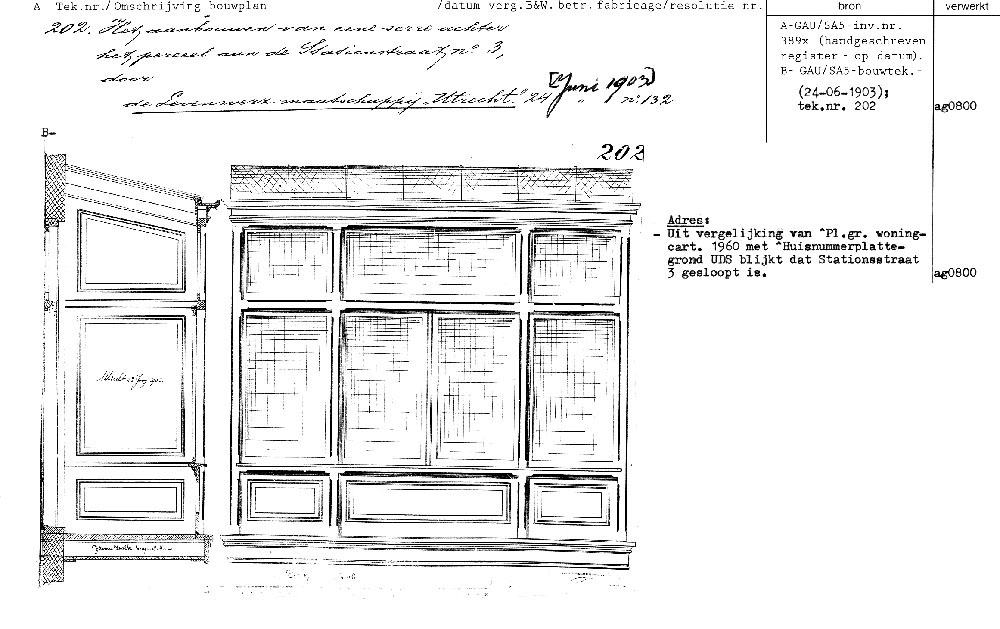 A Tek.nr./Omschrijving bouwplan /datum verg.B&W.betr.fabricage/resolutie nr. bron verwerkt
202. Het aanbouwen van eene serre achter
het perceel aan de Stationsstraat, nº 3,
door
de Levensverz. maatschappij „Utrecht." 24 [Juni 1903] nº 132
A-GAU/SA5 inv.nr.
389x (handgeschreven
register - op datum).
B- GAU/SA5-bouwtek.-
(24-06-1903);
tek.nr. 202
ag0800
B-
202
Adres:
- Uit vergelijking van ^Pl.gr. woning-
cart. 1960 met ^Huisnummerplatte-
grond UDS blijkt dat Stationsstraat
3 gesloopt is.
ag0800
Utrecht